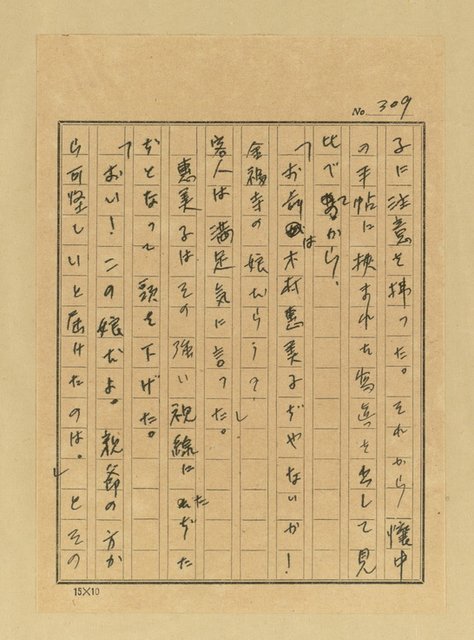 No 309
子に注意を拂つた。それから懐中
の手帖に挟まれた写真を出して見
比べてから、
「お前は木村恵美子ぢやないか！
金福寺の娘だらう？」
客人は満足気に言つた。
恵美子はその強い視線にたぢた
ぢとなつて頭を下げた。
「おい！この娘だよ。親爺の方か
ら可怪しいと届けたのは。」とその
15×10